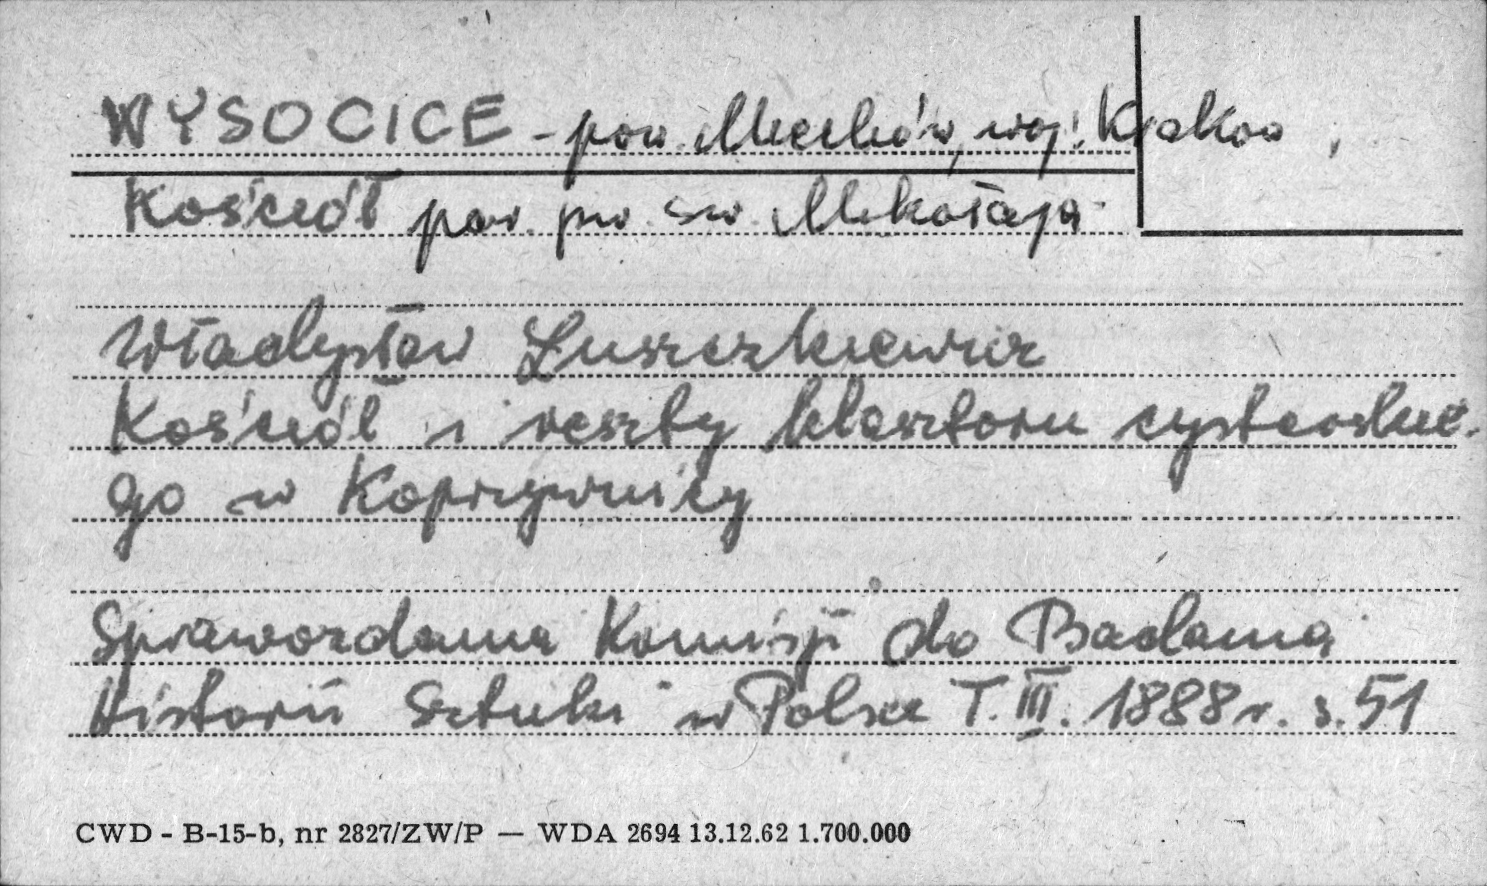 WYSOCICE - pow. Miechów, woj. Kraków,
Kościół par. pw. św. Mikołaja
Władysław Łuszczkiewicz
Kościół i reszty klasztoru cysterskie-
go w Koprzywnicy
Sprawozdania Komisji do Badania
Historii Sztuki w Polsce T. III. 1888 r. s. 51
CWD - B-15-b, nr 2827/ZW/P — WDA 2694 13.12.62 1.700.000